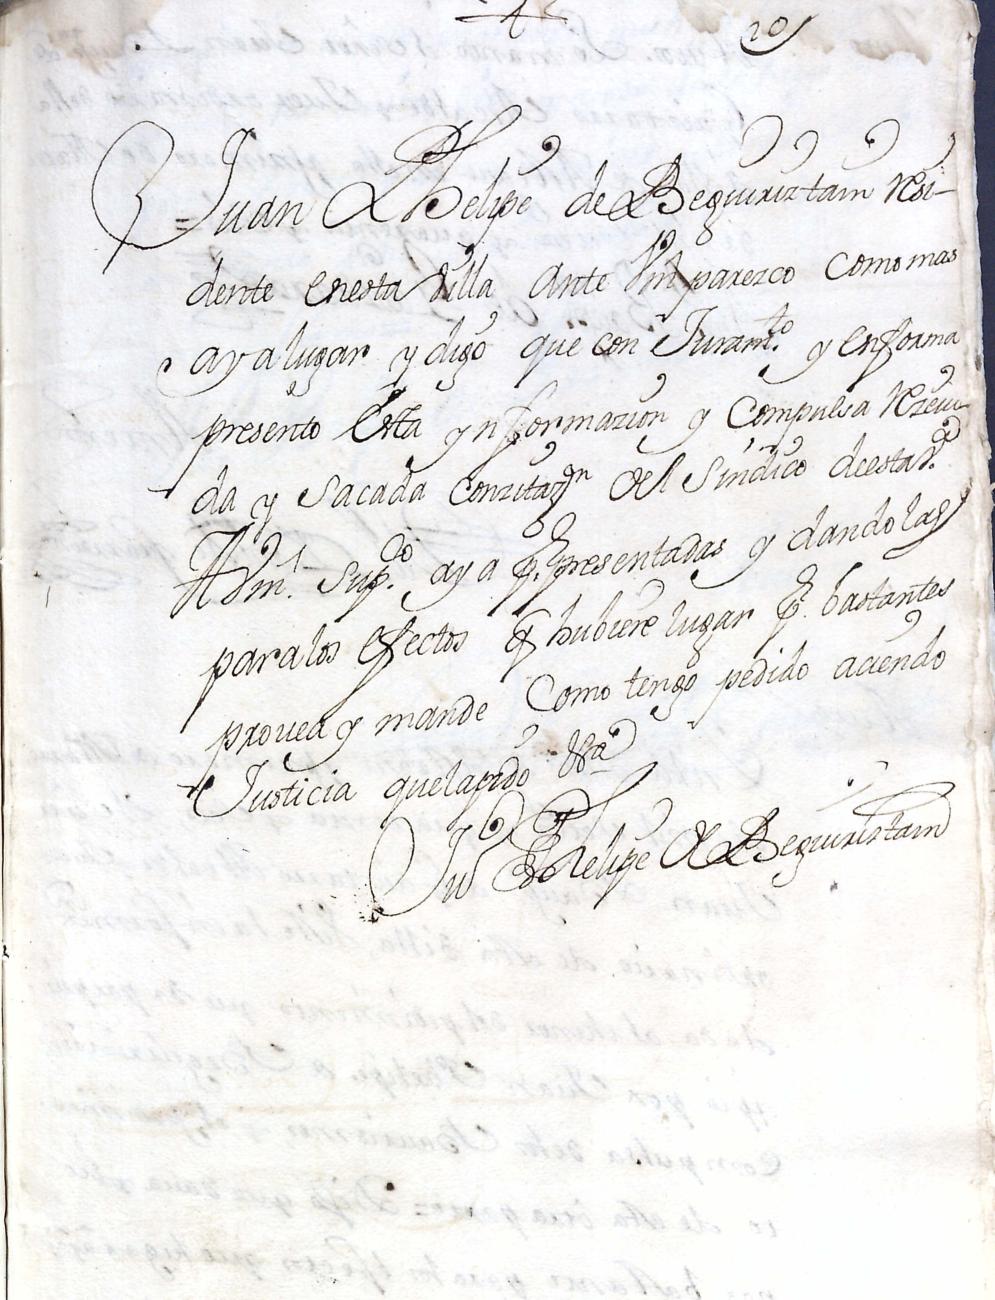 20
Juan Phelipe de Beguiriztain Resi-
dente en esta Villa ante Vm parezco como mas
aya lugar y digo que con Juramto. y en forma
presento Esta ynformazion y Compulsa Rezeui
da y Sacada con zitazon del Sindico de esta Va.
A Vm. supco. aya p. presentadas y dandolas
para los efectos q hubiere lugar p. bastantes
prouea y mande Como tengo pedido aciendo
Justicia que la pido &ra
Ju Phelipe de Beguiriztain